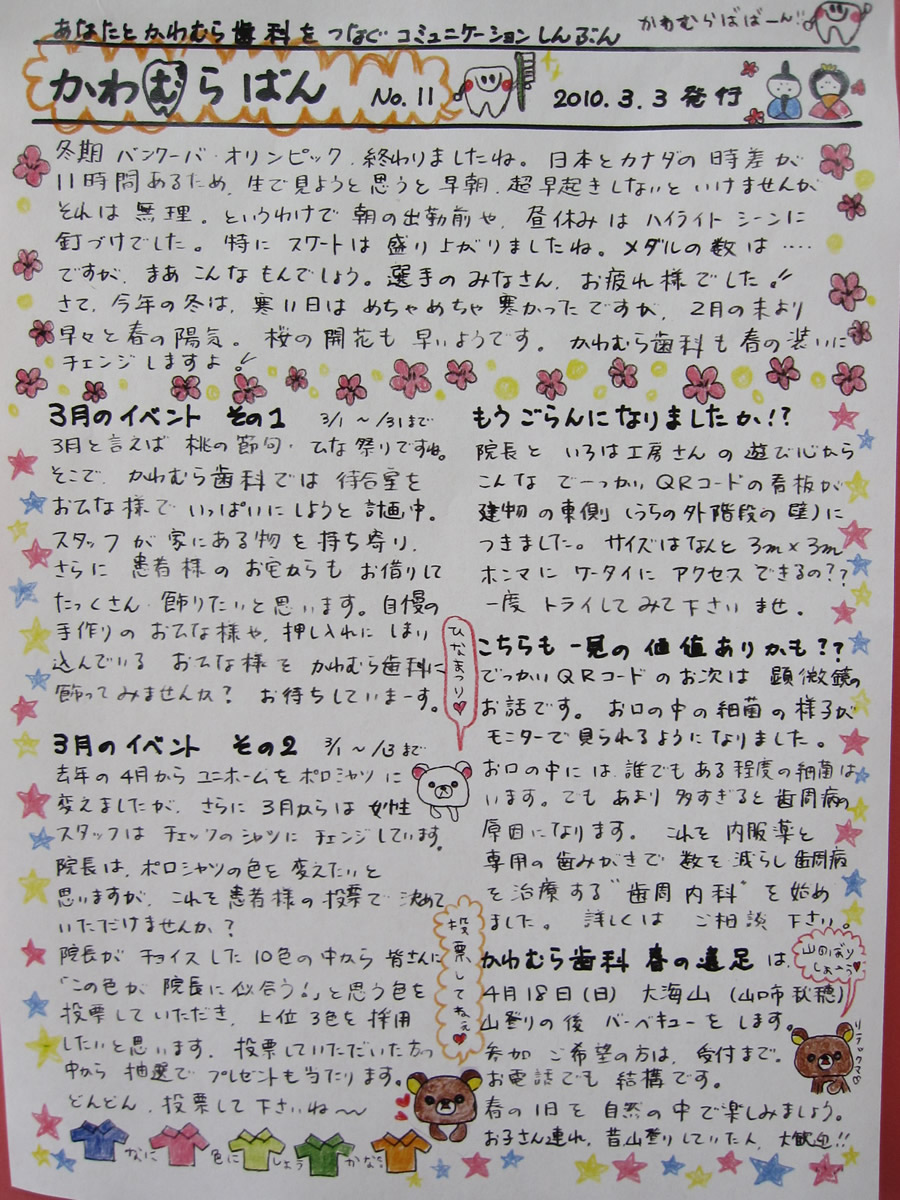 あなたと かわむら歯科を つなぐ コミュニケーションしんぶん
かわむらばばーん!!
かわむらばん No.11 2010.3.3 発行
冬期 バンクーバ・オリンピック、終わりましたね。日本とカナダの時差が
11時間あるため、生で見ようと思うと早朝、超早起きしないといけませんが
それは 無理。というわけで 朝の出勤前や、昼休みは ハイライト シーンに
釘づけでした。特に スケートは 盛り上がりましたね。メダルの数は ‥‥
ですが、まあ こんなもんでしょう。選手のみなさん、お疲れ様でした!!
さて、今年の冬は、寒い日は めちゃめちゃ 寒かったですが、2月の末より
早々と春の陽気。桜の開花も 早いようです。かわむら歯科も 春の装いに
チェンジしますよ!!
3月のイベント その1 3/1 〜 /31まで
3月と言えば 桃の節句・ひな祭りですね。
そこで、かわむら歯科では 待合室を
おひな様で いっぱいにしようと 計画中。
スタッフが 家にある物を 持ち寄り、
さらに 患者様の お宅からも お借りして
たっくさん 飾りたいと思います。自慢の
手作りの おひな様や、押し入れに しまい
込んでいる おひな様を かわむら歯科に
飾ってみませんか? お待ちしていまーす。
ひなまつり
3月のイベント その2 3/1 〜 /13まで
去年の4月から ユニホームを ポロシャツに
変えましたが、さらに 3月からは 女性
スタッフは チェックのシャツに チェンジしています。
院長は、ポロシャツの色を 変えたいと
思いますが、これを患者様の 投票で 決めて
いただけませんか?
院長が チョイスした 10色の中から 皆さんに
「この色が 院長に似合う!」と思う色を
投票していただき、上位 3色を 採用
したいと思います。投票していただいた方の
中から 抽選で プレゼントも当たります。
どんどん、投票して下さいね〜〜
投票してねぇ
なに 色に しょう かな?
もう ごらんになりましたか!?
院長と いろは工房さんの 遊び心から
こんな でーっかい QRコードの看板が
建物の東側(うちの外階段の壁)に
つきました。サイズはなんと 3m×3m
ホンマに ケータイに アクセス できるの??
一度 トライしてみて下さいませ。
こちらも 一見の 価値ありかも??
でっかい QRコードのお次は 顕微鏡の
お話です。お口の中の細菌の様子が
モニターで見られるようになりました。
お口の中には、誰でも ある程度の細菌は
います。でも あまり 多すぎると 歯周病の
原因になります。これを 内服薬と
専用の歯みがきで 数を減らし 歯周病
を治療する"歯周内科"を始め
ました。詳しくは ご相談下さい。
かわむら歯科 春の遠足は、
山のぼり
しましょう
4月18日(日) 大海山(山口市秋穂)
山登りの後 バーベキューを します。
参加 ご希望の方は、受付まで。
お電話でも 結構です。
春の1日を 自然の中で楽しみましょう。
お子さん連れ、昔山登りしていた人、大歓迎!!
リラックマ